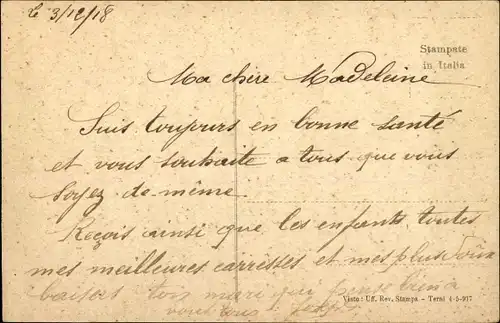 Le 3/12/18
Stampate
in Italia
Ma chère Madeleine
Suis toujours en bonne santé
et vous souhaite a tous que vous
soyez de même.
Reçois ainsi que les enfants toutes
mes meilleures carresses et mes plus doux
baisers ton mari qui pense bien a
vous tous
Visto: Uff. Rev. Stampa - Terni 4-5-917